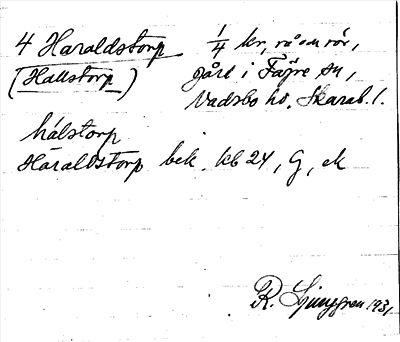 4 Haraldstorp 1/4 kr, rå och rör,
(Hallstorp) gård i Fägre sn,
Vadsbo hd, Skarab. l.
hálstorp
Haraldstorp bek. kb 24, G, ek
R. Ljunggren 1931